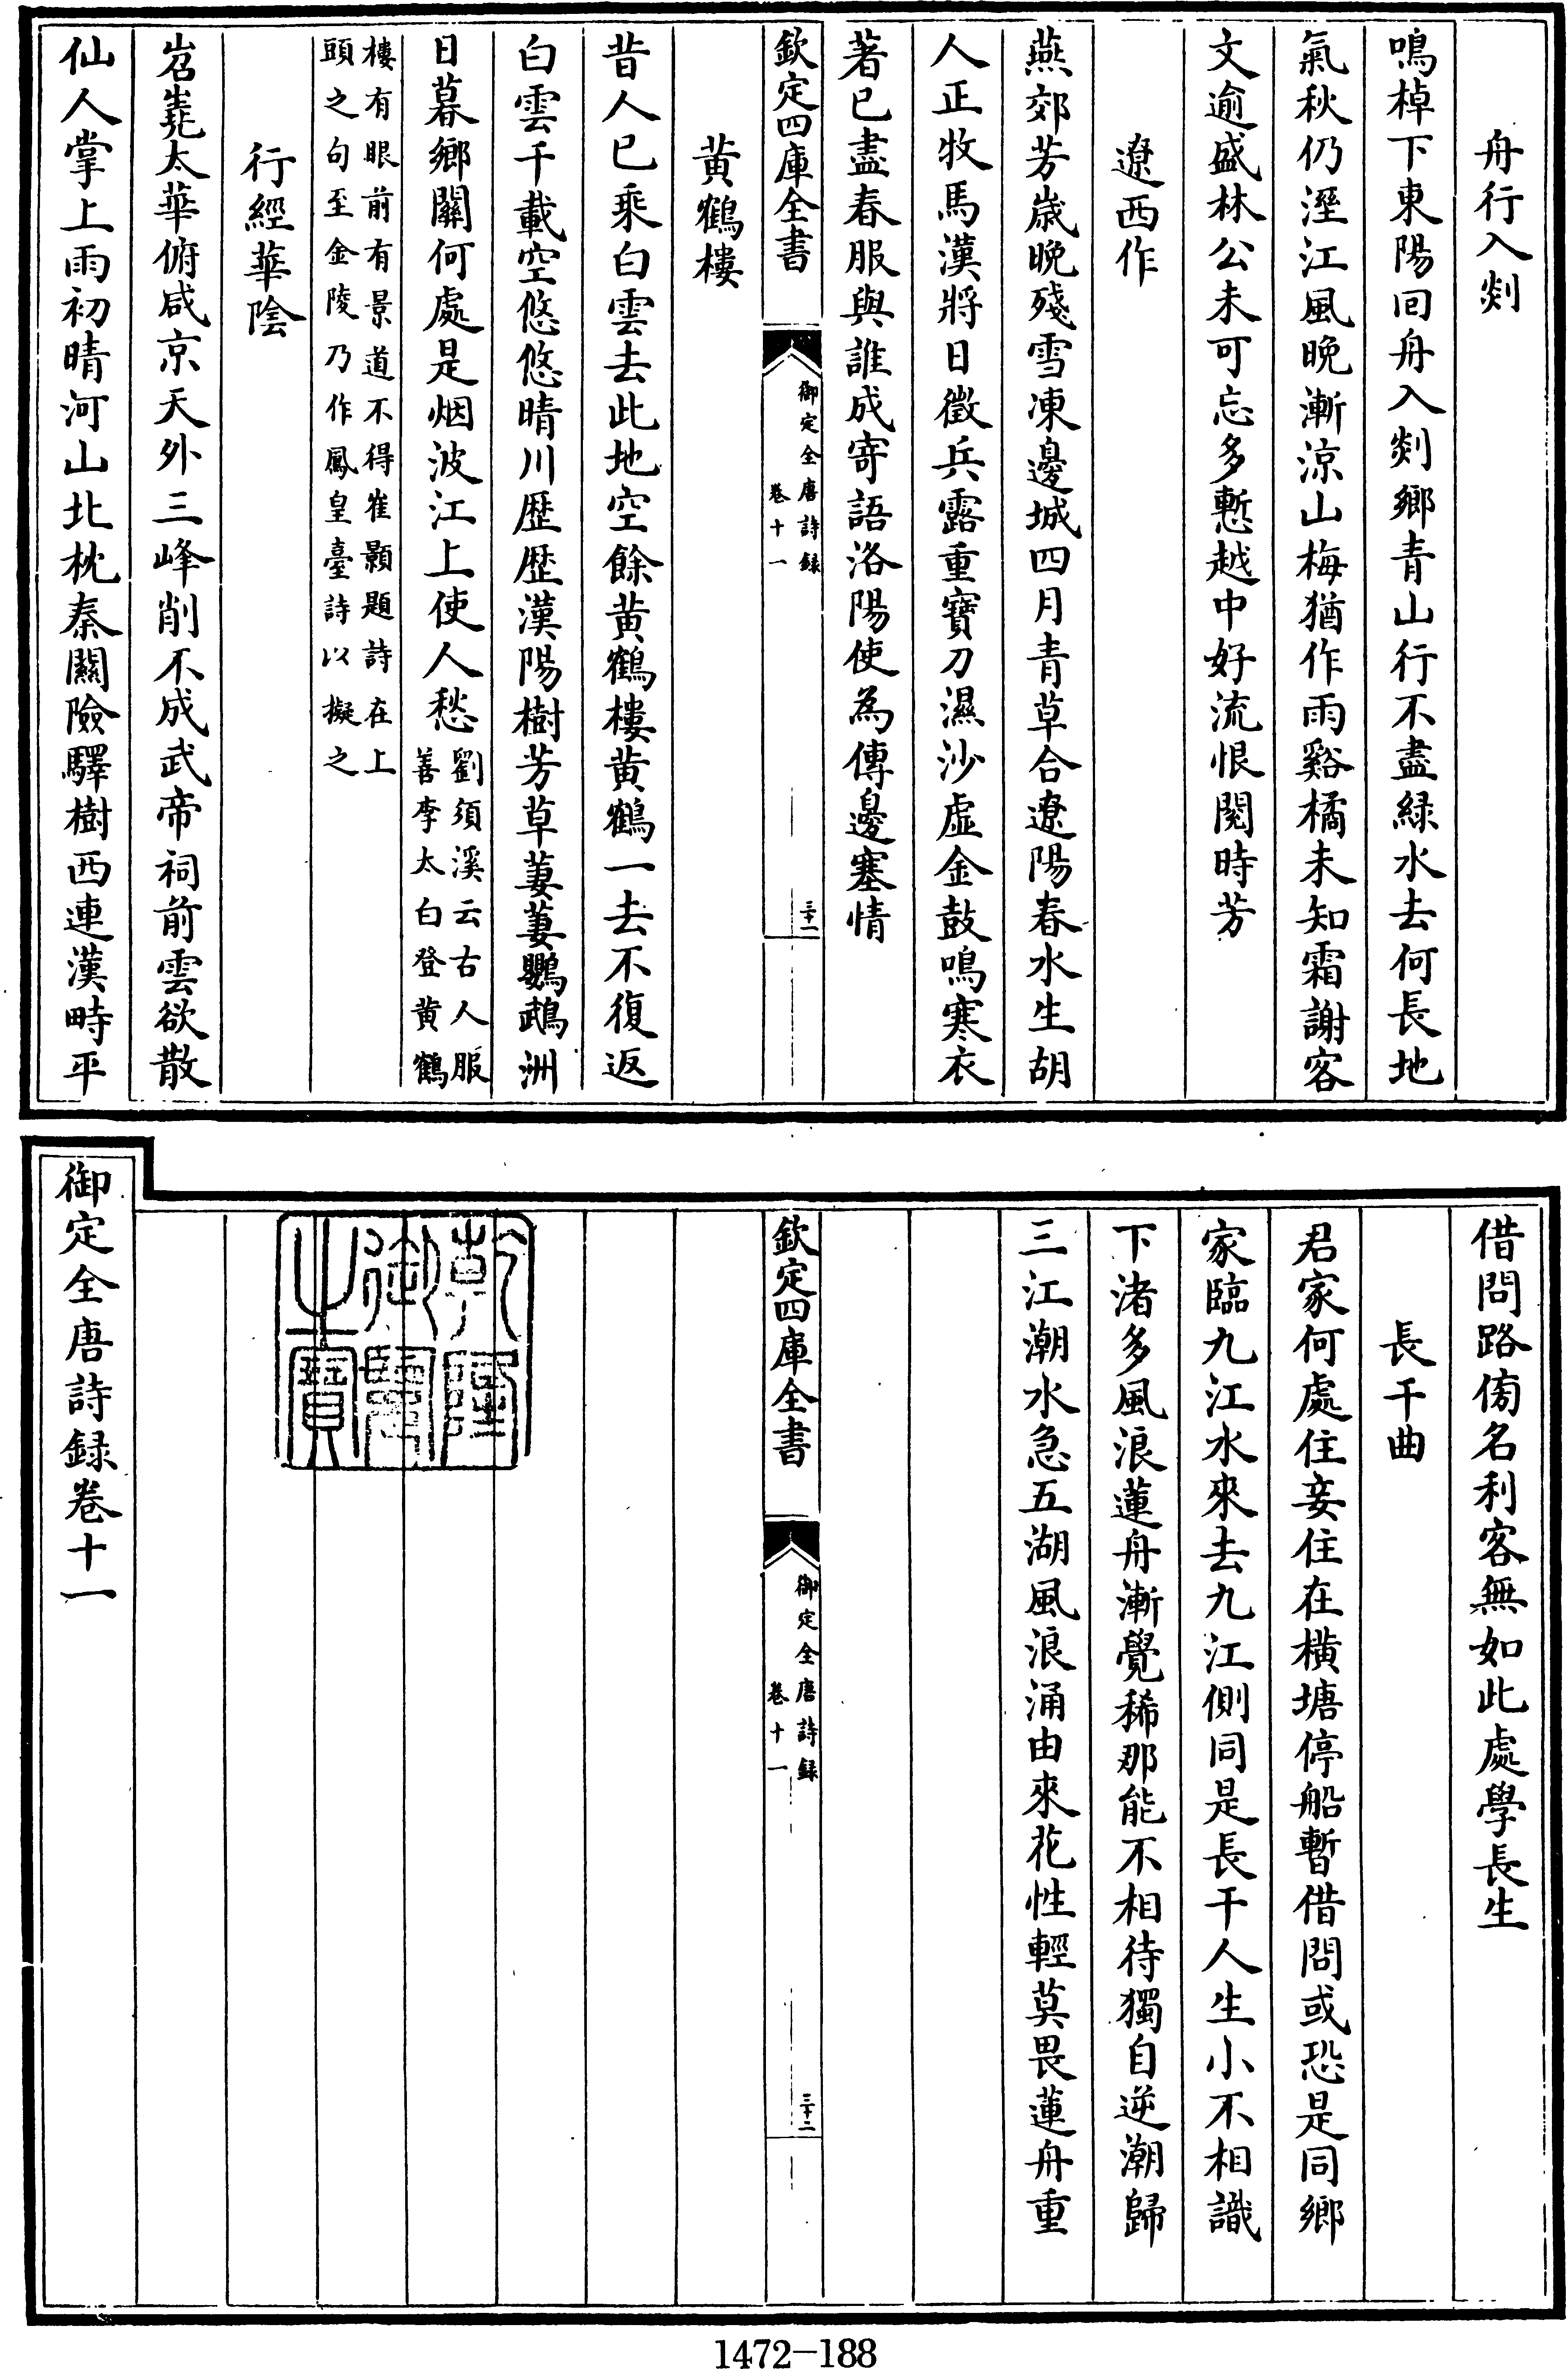 舟行入剡
鳴棹下東陽回舟入剡鄉青山行不盡綠水去何長地
氣秋仍溼江風晚漸涼山梅猶作雨谿橘未知霜謝客
文逾盛林公未可忘多慙越中好流恨閱時芳
遼西作
燕郊芳歲晚殘雪凍邊城四月青草合遼陽春水生胡
人正牧馬漢將日徵兵露重寶刀濕沙虛金鼓鳴寒衣
著已盡春服與誰成寄語洛陽使為傳邊塞情
欽定四庫全書
御定全唐詩錄
卷十一
三十一
黃鶴樓
昔人已乘白雲去此地空餘黃鶴樓黃鶴一去不復返
白雲千載空悠悠晴川歷歷漢陽樹芳草萋萋鸚鵡洲
日暮鄉關何處是烟波江上使人愁
劉須溪云古人服
善李太白登黃鶴
樓有眼前有景道不得崔顥題詩在上
頭之句至金陵乃作鳳皇臺詩以擬之
行經華陰
岧嶤太華俯咸京天外三峰削不成武帝祠前雲欲散
仙人掌上雨初晴河山北枕秦關險驛樹西連漢畤平
借問路傍名利客無如此處學長生
長干曲
君家何處住妾住在橫塘停船暫借問或恐是同鄉
家臨九江水來去九江側同是長干人生小不相識
下渚多風浪蓮舟漸覺稀那能不相待獨自逆潮歸
三江潮水急五湖風浪涌由來花性輕莫畏蓮舟重
欽定四庫全書
御定全唐詩錄
卷十一
三十二
乾隆
御覽
之寶
御定全唐詩錄卷十一
1472-188